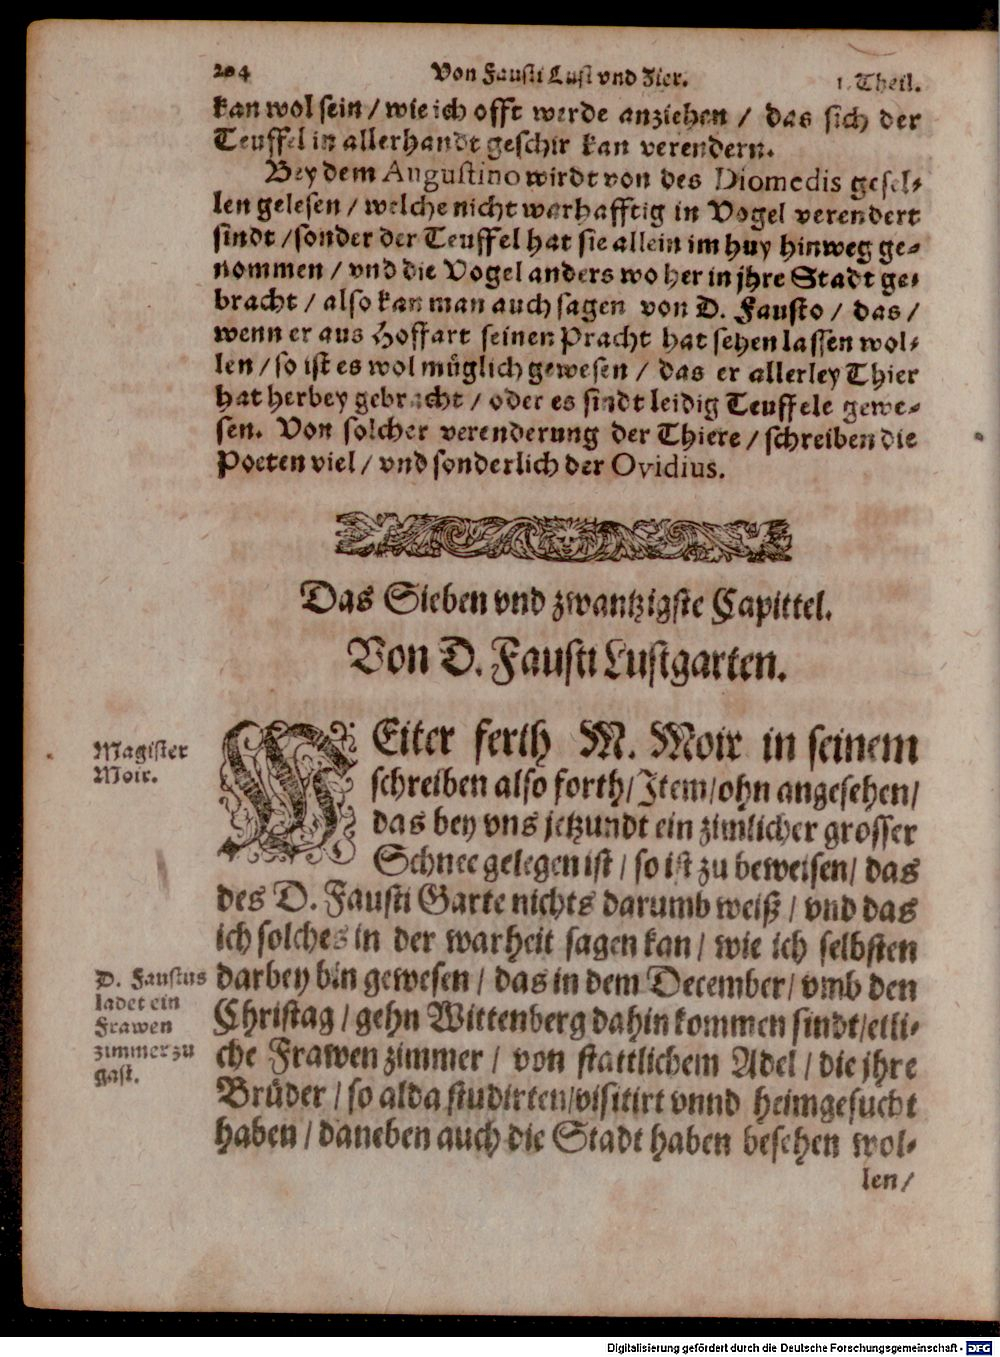 204 Von Fausti Lust vnd Zier. 1. Theil.
kan wol sein / wie ich offt werde anziehen / das sich der
Teuffel in allerhandt geschir kan verendern.
Bey dem Augustino wirdt von des Diomedis gesel-
len gelesen / welche nicht warhafftig in Vogel verendert
sindt / sonder der Teuffel hat sie allein im huy hinweg ge-
nommen / vnd die Vogel anders wo her in jhre Stadt ge-
bracht / also kan man auch sagen von D. Fausto / das /
wenn er aus Hoffart seinen Pracht hat sehen lassen wol-
len / so ist es wol müglich gewesen / das er allerley Thier
hat herbey gebracht / oder es sindt leidig Teuffele gewe-
sen. Von solcher verenderung der Thiere / schreiben die
Poeten viel / vnd sonderlich der Ovidius.
Das Sieben vnd zwantzigste Capittel.
Von D. Fausti Lustgarten.
Magister
Moir.
WEiter ferth M. Moir in seinem
schreiben also forth / Item / ohn angesehen /
das bey vns jetzundt ein zimlicher grosser
Schnee gelegen ist / so ist zu beweisen / das
des D. Fausti Garte nichts darumb weiß / vnd das
ich solches in der warheit sagen kan / wie ich selbsten
D. Faustus
ladet ein
Frawen
zimmer zu
gast.
darbey bin gewesen / das in dem December / vmb den
Christag / gehn Wittenberg dahin kommen sindt / etli-
che Frawen zimmer / von stattlichem Adel / die jhre
Brüder / so alda studirten / visitirt vnnd heimgesucht
haben / daneben auch die Stadt haben besehen wol-
len /
Digitalisierung gefördert durch die Deutsche Forschungsgemeinschaft - DFG